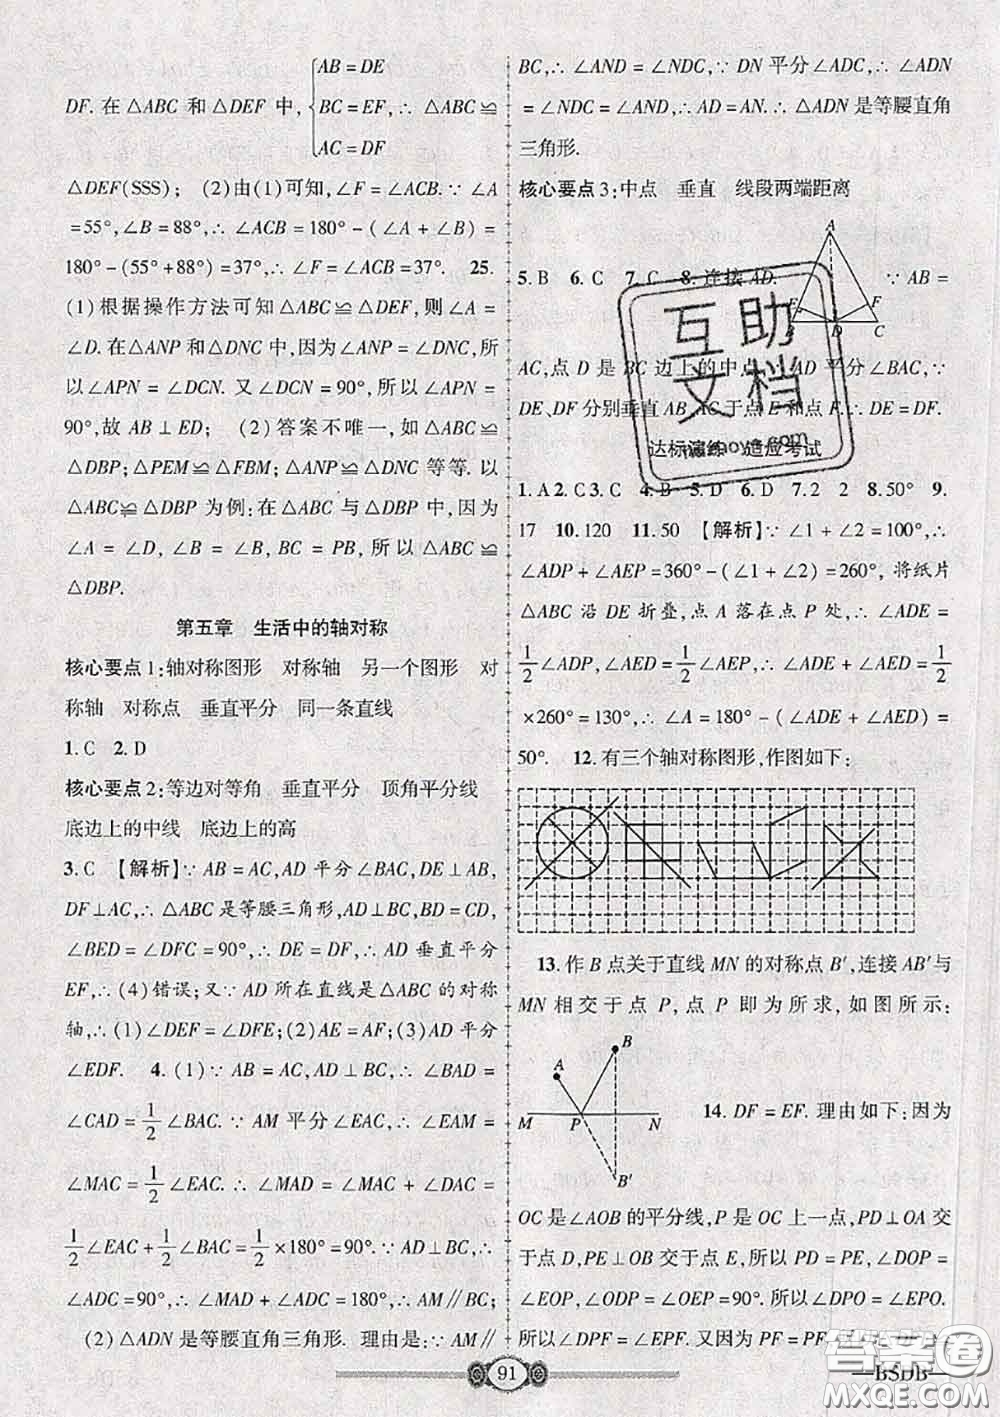 AB = DE
DF. 在 △ABC 和 △DEF 中, BC = EF, ∴ △ABC ≌
AC = DF
△DEF(SSS); (2)由(1)可知, ∠F = ∠ACB. ∵ ∠A
=55°, ∠B = 88°, ∴ ∠ACB = 180° - (∠A + ∠B) =
180° - (55° +88°) =37°, ∴ ∠F = ∠ACB = 37°. 25.
(1)根据操作方法可知 △ABC ≌ △DEF, 则 ∠A =
∠D. 在△ANP 和△DNC 中,因为∠ANP = ∠DNC,所
以∠APN = ∠DCN. 又∠DCN = 90°,所以∠APN =
90°,故 AB⊥ED; (2)答案不唯一,如 △ABC ≌
△DBP; △PEM ≌ △FBM; △ANP ≌ △DNC 等等. 以
△ABC≌△DBP 为例:在△ABC 与△DBP 中,因为
∠A = ∠D, ∠B = ∠B, BC = PB, 所以 △ABC ≌
△DBP.
第五章 生活中的轴对称
核心要点 1:轴对称图形 对称轴 另一个图形 对
称轴 对称点 垂直平分 同一条直线
1. C 2. D
核心要点 2:等边对等角 垂直平分 顶角平分线
底边上的中线 底边上的高
3. C 【解析】∵ AB = AC, AD 平分∠BAC, DE⊥AB,
DF⊥AC, ∴ △ABC 是等腰三角形, AD⊥BC, BD = CD,
∠BED = ∠DFC = 90°, ∴ DE = DF, ∴ AD 垂直平分
EF, ∴ (4)错误;又∵ AD 所在直线是△ABC 的对称
轴, ∴ (1)∠DEF = ∠DFE; (2)AE = AF; (3)AD 平分
∠EDF. 4. (1)∵ AB = AC, AD⊥BC, ∴ ∠BAD =
∠CAD = 1/2 ∠BAC. ∵ AM 平分∠EAC, ∴ ∠EAM =
∠MAC = 1/2 ∠EAC. ∴ ∠MAD = ∠MAC + ∠DAC =
1/2 ∠EAC + 1/2 ∠BAC = 1/2 ×180° = 90°. ∵ AD⊥BC, ∴
∠ADC = 90°, ∴ ∠MAD + ∠ADC = 180°, ∴ AM∥BC;
(2) △ADN 是等腰直角三角形. 理由是: ∵ AM∥
BC, ∴ ∠AND = ∠NDC, ∵ DN 平分∠ADC, ∴ ∠ADN
= ∠NDC = ∠AND, ∴ AD = AN. ∴ △ADN 是等腰直角
三角形.
核心要点 3:中点 垂直 线段两端距离
5. B 6. C 7. C 8. 连接 AD. ∵ AB =
A
E F
B D C
AC, 点 D 是 BC 边上的中点 AD 平分∠BAC, ∵
DE、DF 分别垂直 AB、AC 于点 E 和点 F. ∴ DE = DF.
达标演练 适应考试
1. A 2. C 3. C 4. B 5. D 6. D 7. 2 2 8. 50° 9.
17 10. 120 11. 50 【解析】∵ ∠1 + ∠2 = 100°, ∴
∠ADP + ∠AEP = 360° - (∠1 + ∠2) = 260°, 将纸片
△ABC 沿 DE 折叠, 点 A 落在点 P 处, ∴ ∠ADE =
1/2 ∠ADP, ∠AED = 1/2 ∠AEP, ∴ ∠ADE + ∠AED = 1/2
×260° = 130°, ∴ ∠A = 180° - (∠ADE + ∠AED) =
50°. 12. 有三个轴对称图形,作图如下:
13. 作 B 点关于直线 MN 的对称点 B′,连接 AB′与
MN 相交于点 P, 点 P 即为所求, 如图所示:
A B
M P N
B′
14. DF = EF. 理由如下:因为
OC 是∠AOB 的平分线, P 是 OC 上一点, PD⊥OA 交
于点 D, PE⊥OB 交于点 E, 所以 PD = PE, ∠DOP =
∠EOP, ∠ODP = ∠OEP = 90°. 所以∠DPO = ∠EPO.
所以∠DPF = ∠EPF. 又因为 PF = PF
91
BSDB
互助
文档
答案圈
MXQE.COM